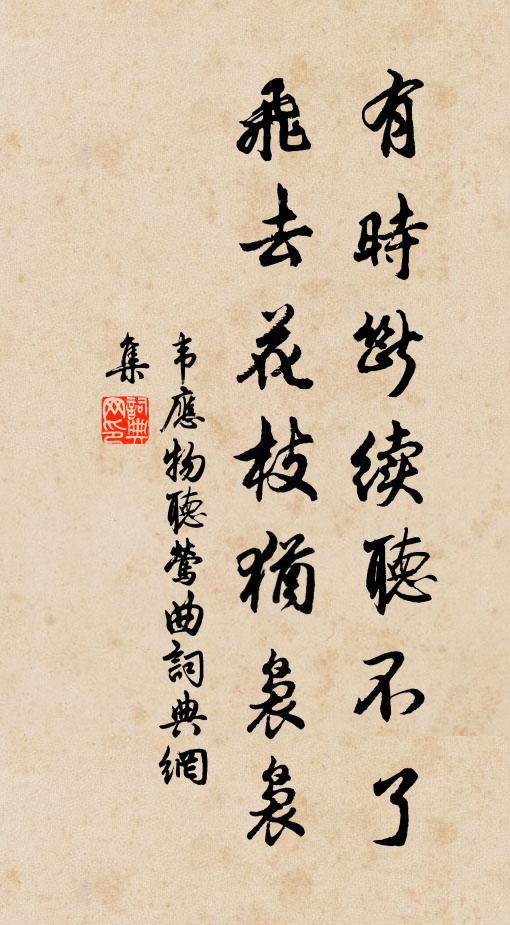 有時斷续聽不了
飛去花枝猶裊裊
韦應物聽鶯曲詞典網
集
詞典
网印